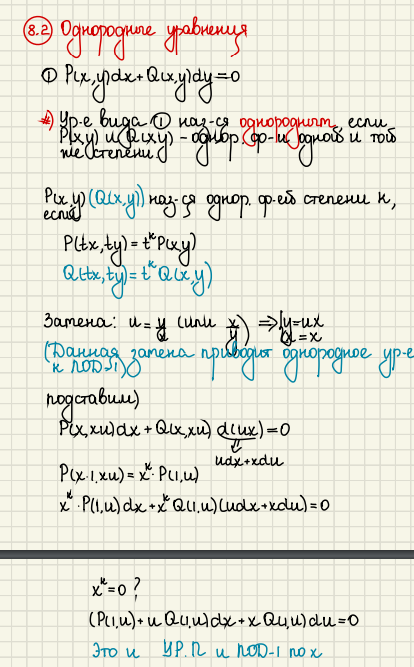 8.2 Однородные уравнения
① P(x,y)dx + Q(x,y)dy = 0
#) Ур-е вида ① наз-ся однородным, если
P(x,y) и Q(x,y) - однор. ф-и одной и той
же степени
P(x,y) (Q(x,y)) наз-ся однор. ф-ей степени к,
если
P(tx,ty) = tᵏ P(x,y)
Q(tx,ty) = tᵏ Q(x,y)
Замена: u = y/x (или x/y) ⇒ {y=ux
x = x
(Данная замена приводит однородное ур-е
к ПОД-1)
подставим)
P(x,xu)dx + Q(x,xu) d(ux) = 0
udx + xdu
P(x·1,xu) = xᵏ · P(1,u)
xᵏ · P(1,u)dx + xᵏ Q(1,u)(udx + xdu) = 0
xᵏ = 0 ?
(P(1,u) + u Q(1,u)dx + x Q(1,u)du = 0
Это и УР.П и ПОД-1 по x